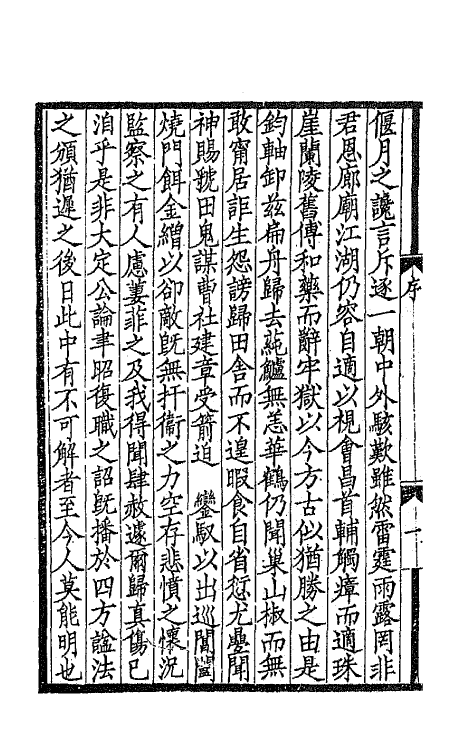 偃月之讒言斥逐一朝中外駭歎雖然雷霆雨露罔非
君恩廊廟江湖仍容自適以視會昌首輔觸瘴而適珠
崖蘭陵舊傅和藥而辭牢獄以今方古似猶勝之由是
鈞軸卸茲扁舟歸去蒓鱸無恙華鶴仍聞巢山椒而無
敢甯居詎生怨謗歸田舍而不遑暇食自省愆尤㬥聞
神賜虢田鬼謀曹社建章受箭迫 鑾馭以出巡閶闔
燒門餌金繒以卻敵旣無扞衞之力空存悲憤之懷況
監察之有人慮萋菲之及我得聞肆赦遽爾歸真傷已
洎乎是非大定公論聿昭復職之詔旣播於四方諡法
之頒猶遲之後日此中有不可解者至今人莫能明也
序
一